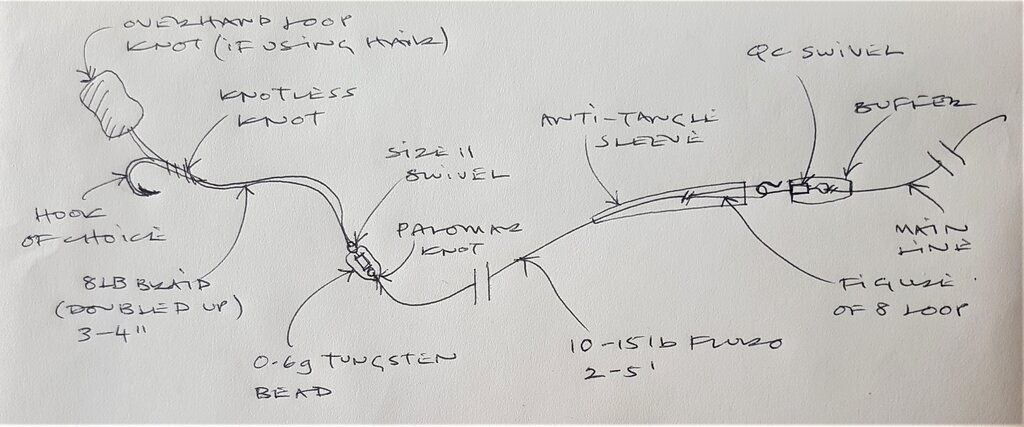 OVERHAND LOOP
KNOT (IF USING HAIR)
KNOTLESS
KNOT
SIZE 11
SWIVEL
ANTI-TANGLE
SLEEVE
QC SWIVEL
BUFFER
HOOK
OF CHOICE
8LB BRAID
(DOUBLED UP)
3-4"
PALOMAR
KNOT
0.6g TUNGSTEN
BEAD
10-15lb FLURO
2-5'
MAIN
LINE
FIGURE
OF 8 LOOP